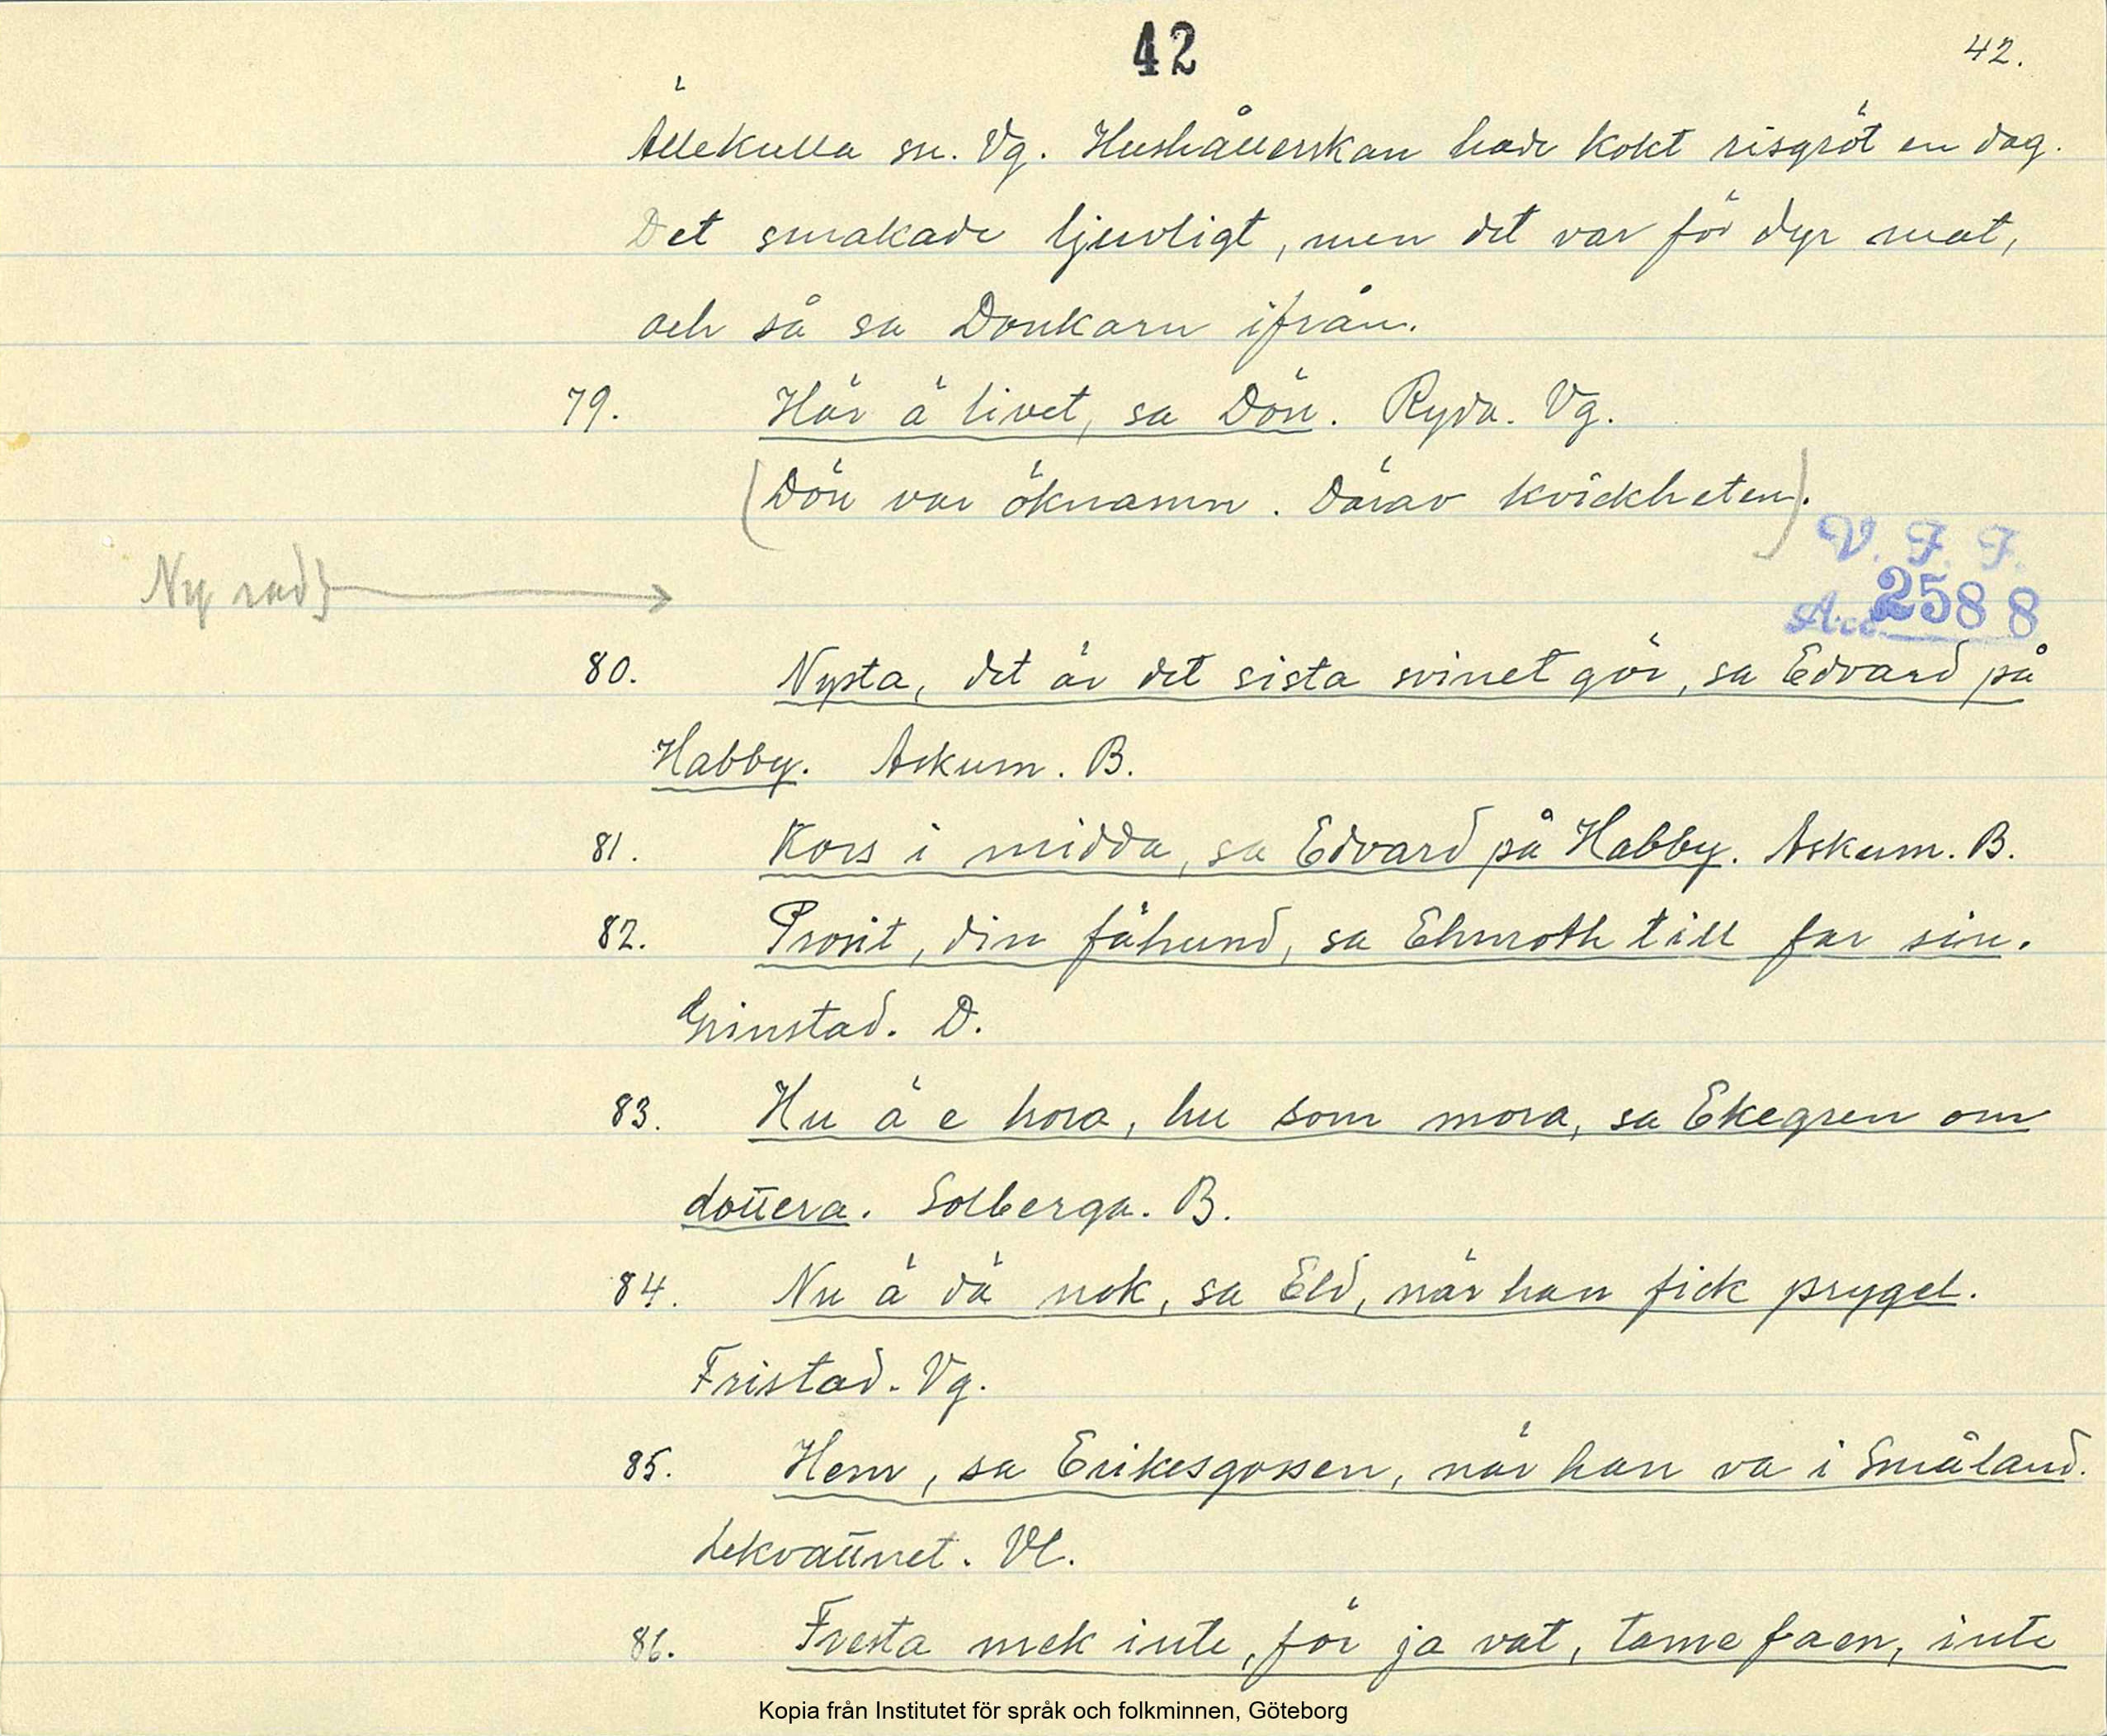 42
42.
Ällekulla sn. Vg. Hushållerskan hade kokt risgröt en dag.
Det smakade ljuvligt, men det var för dyr mat,
och så sa Donkarn ifrån.
79. Här ä livet, sa Dön. Ryda. Vg.
(Dön var öknamn. Därav kvickheten).
V. F. F.
Ny rad}
Acc. 2588
80. Nysta, det är det sista svinet gör, sa Edvard på
Habby. Askum. B.
81. Kors i midda, sa Edvard på Habby. Askum. B.
82. Prosit, din fähund, sa Ehnroth till far sin.
Grinstad. D.
83. Hu ä e hora, hu som mora, sa Ekegren om
dottera. Solberga. B.
84. Nu ä dä nok, sa Eld, när han fick prygel.
Fristad. Vg.
85. Hem, sa Erikesgossen, när han va i Småland.
Lekvattnet. Vl.
86. Fresta mek inte, för ja vät, tame faen, inte
Kopia från Institutet för språk och folkminnen, Göteborg